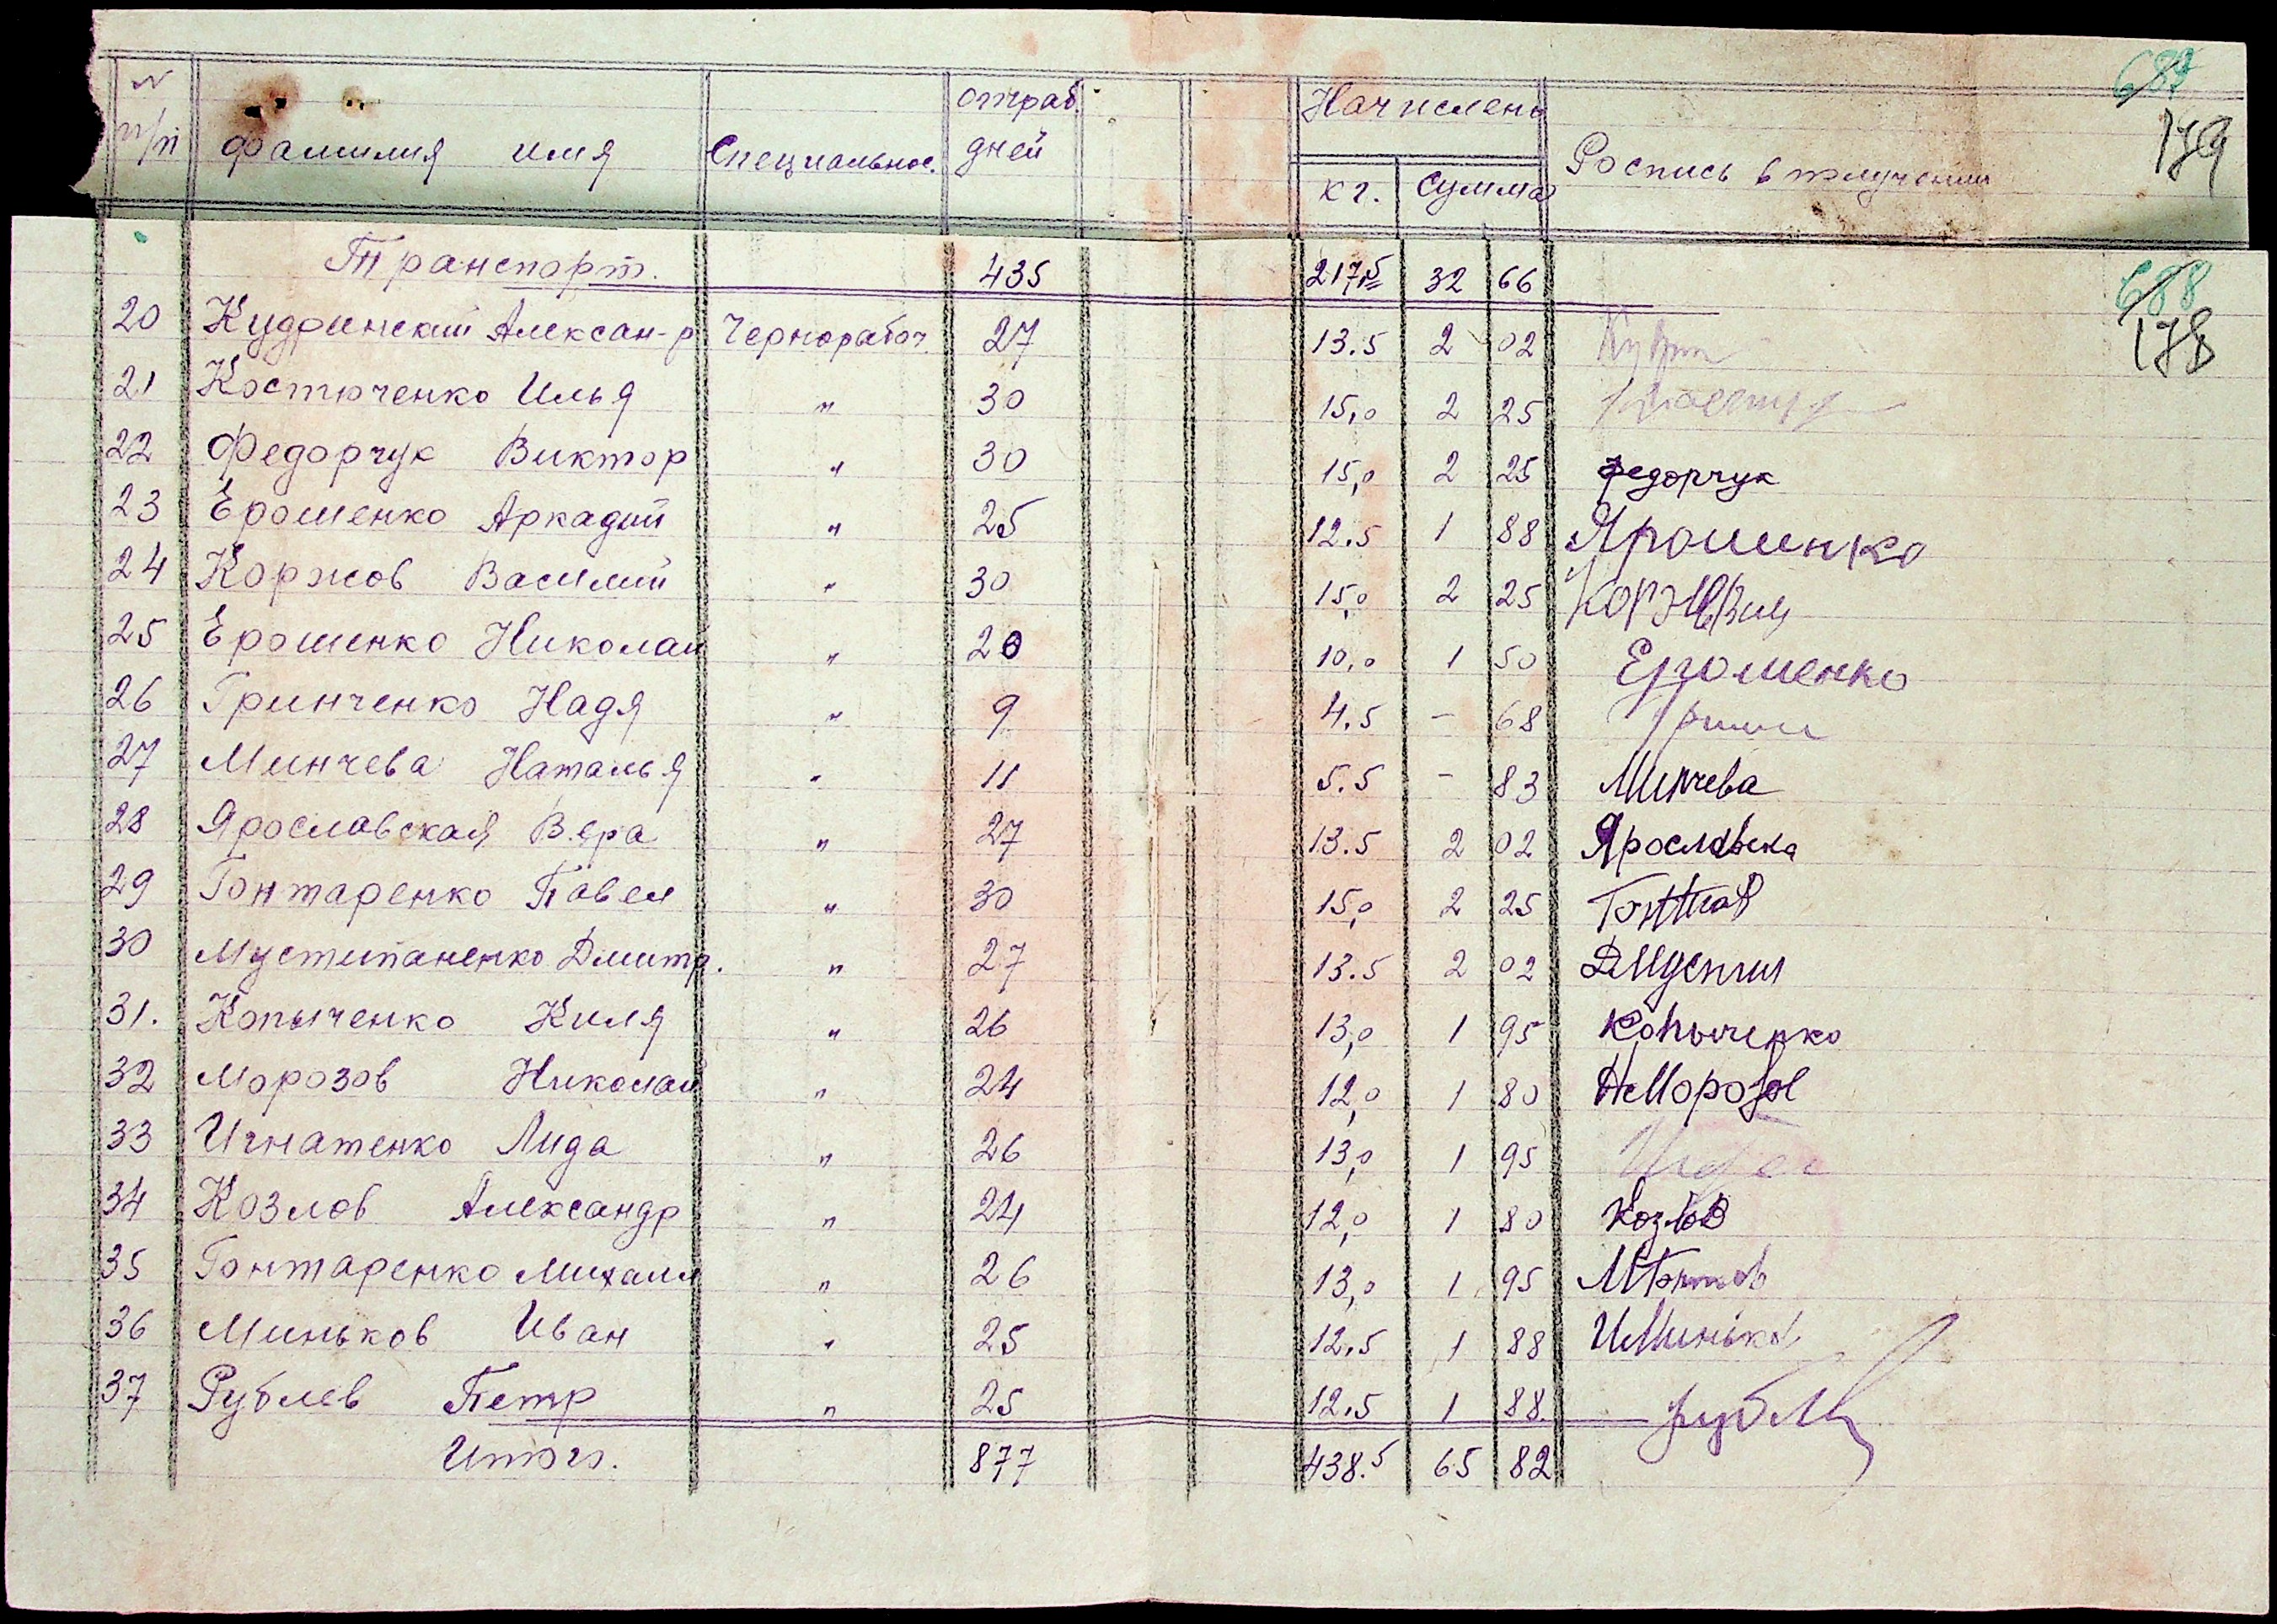 687
179
№ п/п Фамилия имя Специальнос. отраб. дней Начислено кг. сумма Роспись в получении
688
178
Транспорт. 435 217,5 32 66
20 Кудринский Алексан-р Чернорабоч. 27 13.5 2 02
21 Костюченко Илья " 30 15,0 2 25
22 Федорчук Виктор " 30 15,0 2 25 федорчук
23 Ерошенко Аркадий " 25 12.5 1 88 Ярошинко
24 Коржов Василий " 30 15,0 2 25
25 Ерошенко Николай " 20 10,0 1 50 Ерошенко
26 Гринченко Надя " 9 4.5 – 68
27 Минчева Наталья " 11 5.5 – 83 Минчева
28 Ярославская Вера " 27 13.5 2 02 Ярославска
29 Гонтаренко Павел " 30 15,0 2 25
30 Мустипаненко Дмитр. " 27 13.5 2 02
31. Копыченко Киля " 26 13,0 1 95 Копыченко
32 Морозов Николай " 24 12,0 1 80 НМорозов
33 Игнатенко Лида " 26 13,0 1 95
34 Козлов Александр " 24 12,0 1 80 Козлов
35 Гонтаренко Михаил " 26 13,0 1 95
36 Миньков Иван " 25 12.5 1 88 ИМиньков
37 Рублев Петр " 25 12.5 1 88.
Итого. 877 438.5 65 82